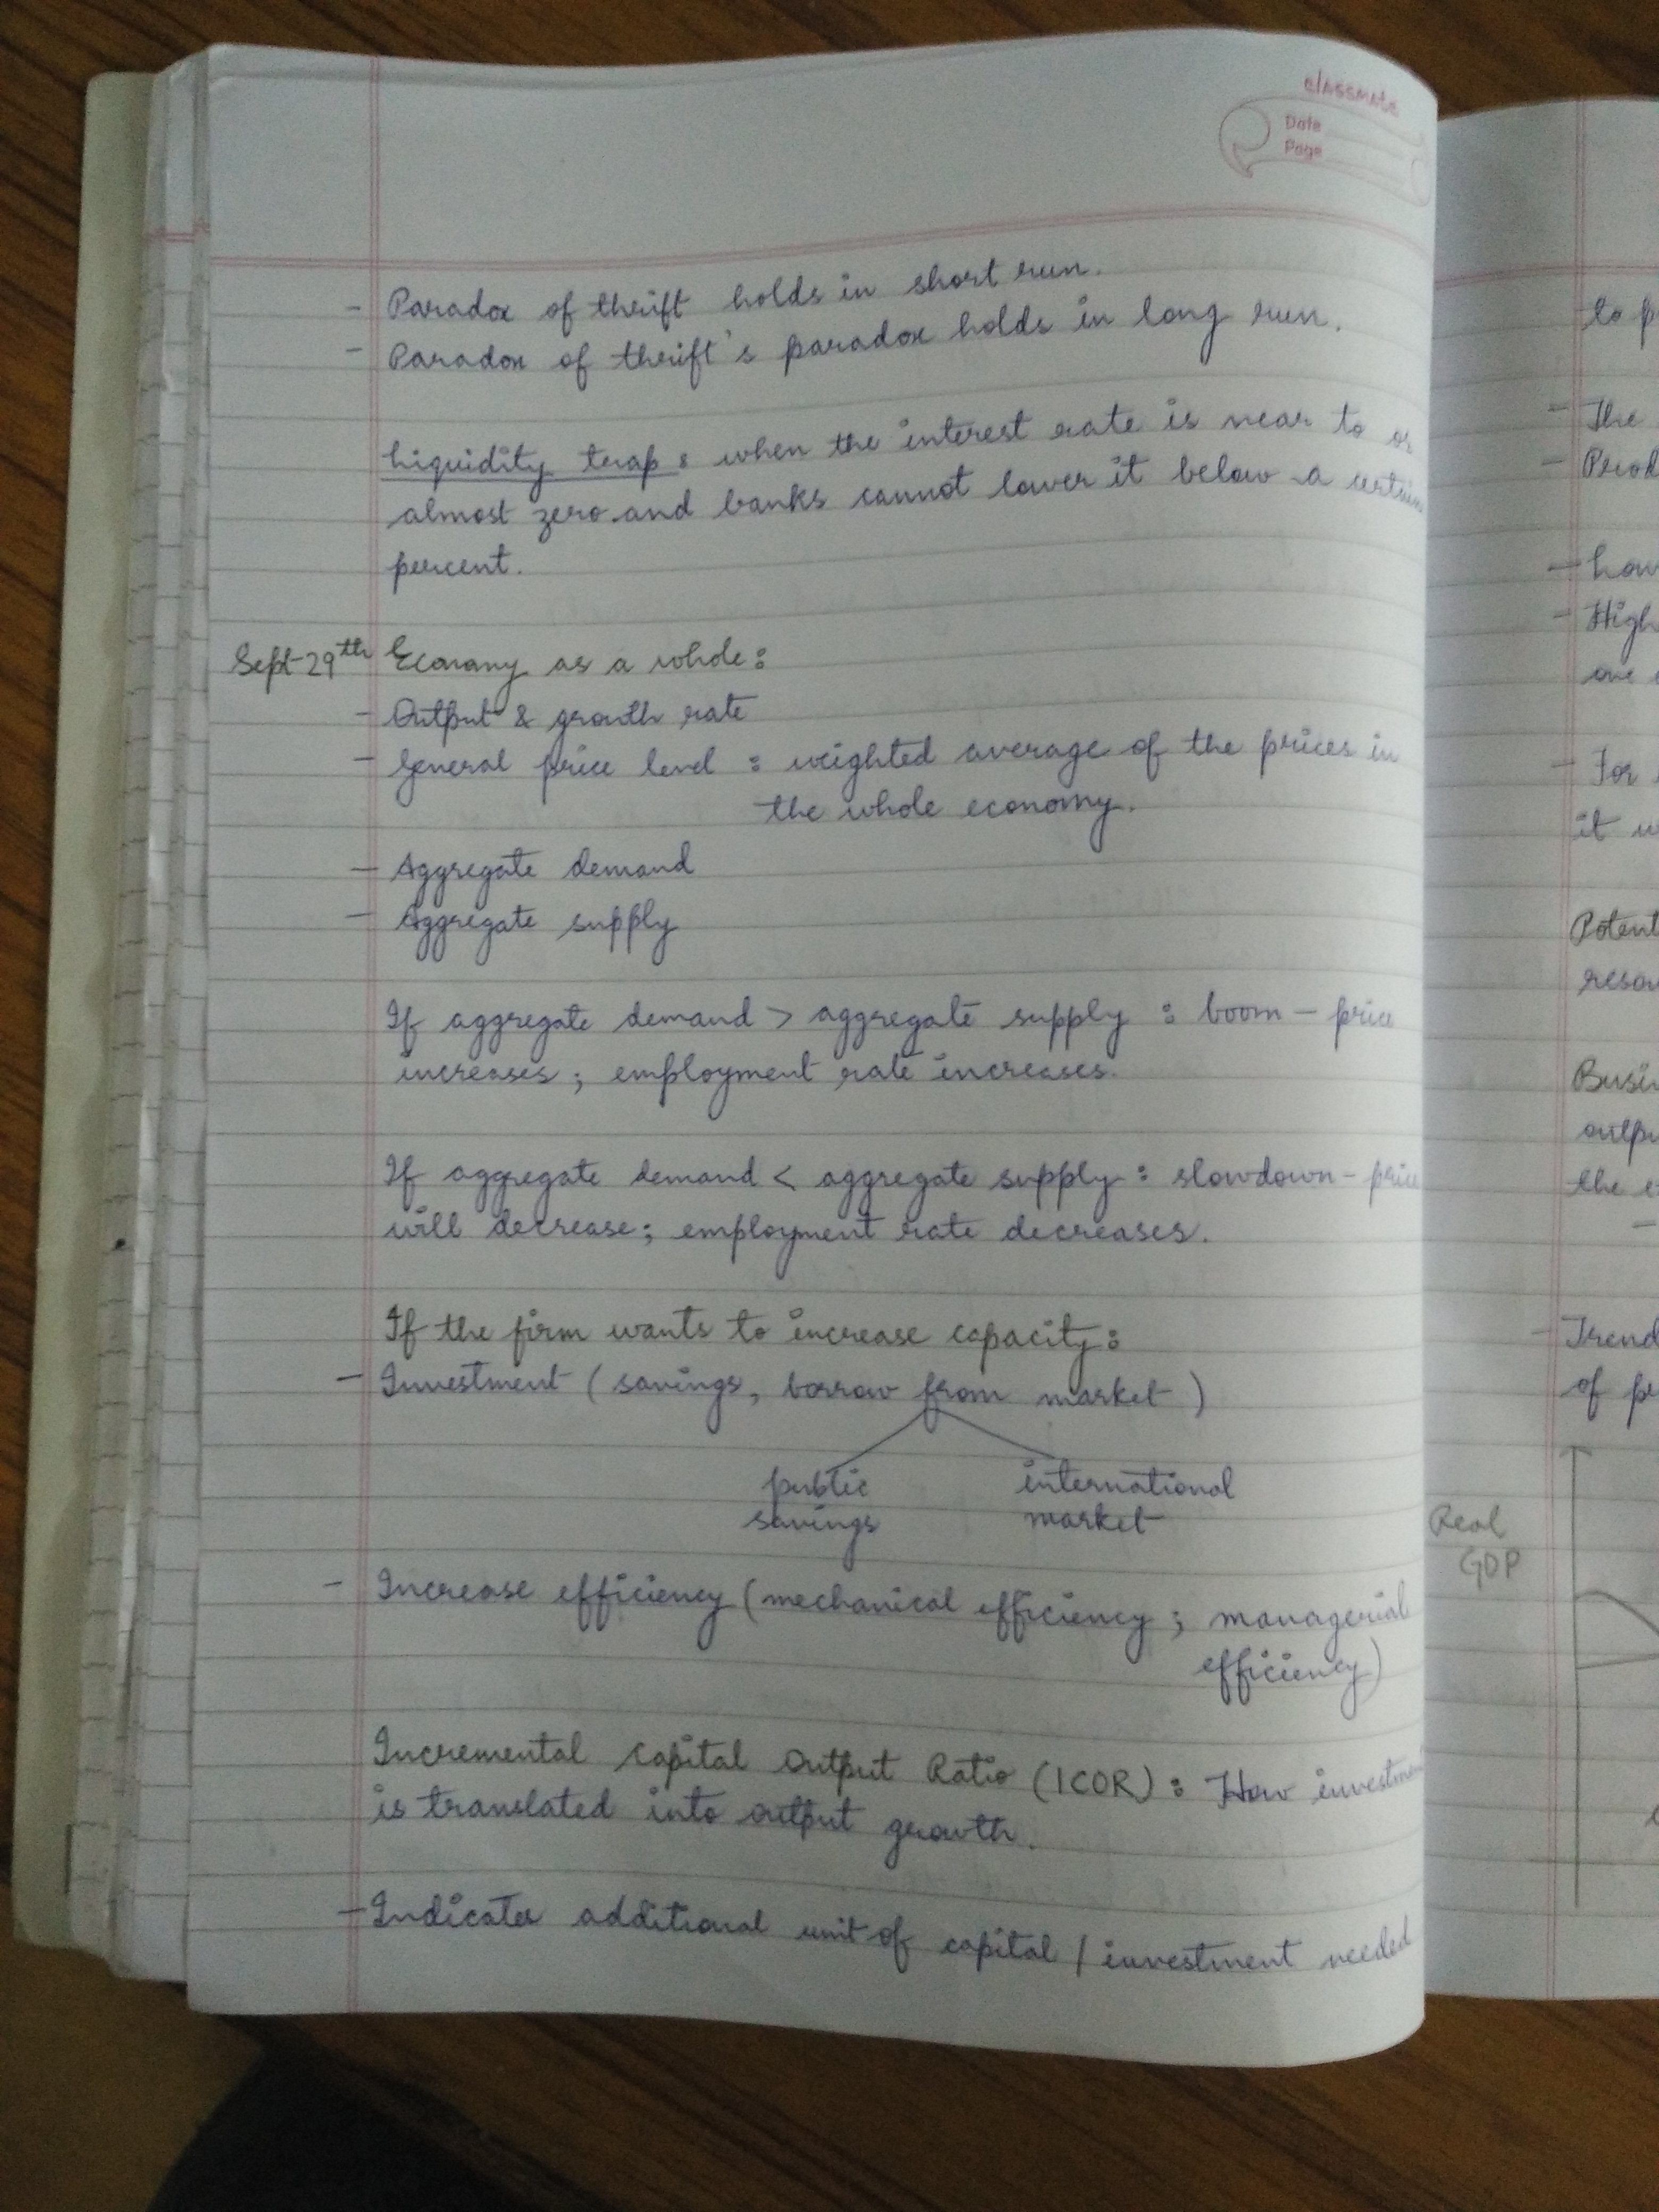 classmate
Date
Page
- Paradox of thrift holds in short run.
- Paradox of thrift's paradox holds in long run.
Liquidity trap : when the interest rate is near to or
almost zero and banks cannot lower it below a certain
percent.
Sept 29th Economy as a whole :
- Output & growth rate
- General price level : weighted average of the prices in
the whole economy.
- Aggregate demand
- Aggregate supply
If aggregate demand > aggregate supply : boom - price
increases ; employment rate increases.
If aggregate demand < aggregate supply : slowdown - price
will decrease ; employment rate decreases.
If the firm wants to increase capacity :
- Investment ( savings, borrow from market )
public international
savings market
- Increase efficiency (mechanical efficiency ; managerial
efficiency)
Incremental Capital Output Ratio (ICOR) : How investment
is translated into output growth.
- Indicates additional unit of capital / investment needed
to p
- The
- Prod
- Low
- High
one
- For
it w
Potent
resou
Busin
outpu
the e
-
- Trend
of pr
Real
GDP